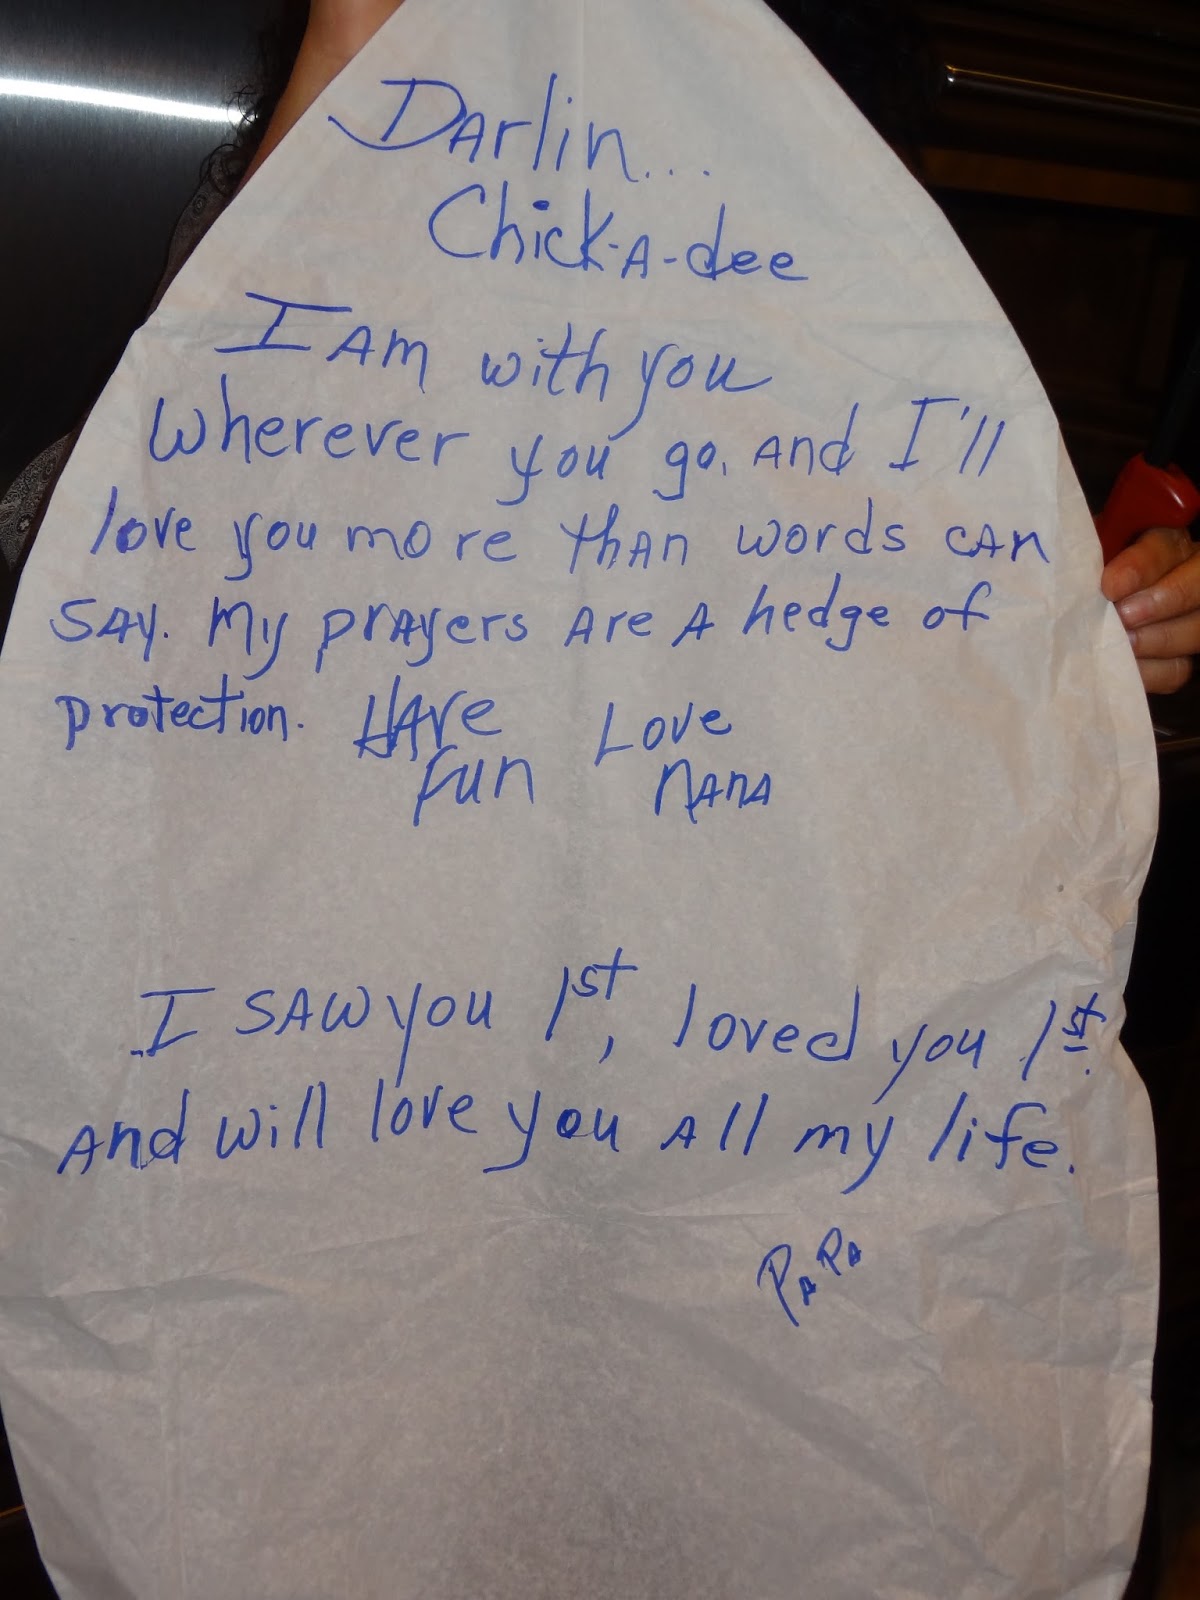 Darlin...
Chick-A-dee
I Am with you
Wherever you go, and I'll
love you more than words can
say. My prayers are a hedge of
protection. Have Love
fun Nana
I saw you 1st, loved you 1st.
and will love you all my life.
PaPa